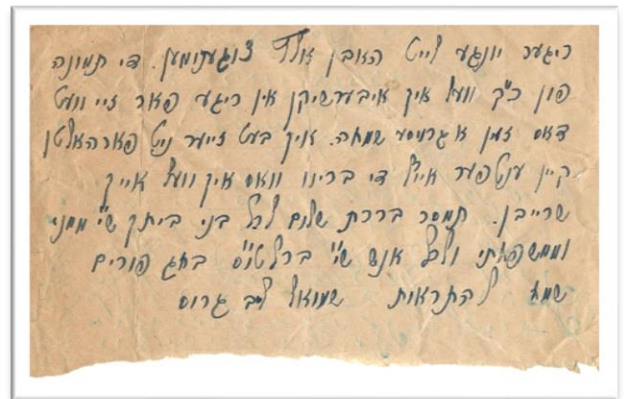 ריגער יונגע לייט האבן אלץ צוגענומען. די תמונה
פון כ"ק וועל איך איבערשיקן אין ריגע פאר זיי וועט
דאס זיין א גרויסע שמחה. איך בעט זייער ניט פארהאלטן
קיין ענטפער אויף די בריוו וואס איך וועל אייך
שרייבן. תמסר ברכת שלום לכל בני ביתך שי' ממני
וממשפחתי ולכל אנ"ש שי' בחג פורים
שמח להתראות שמואל ליב גרוס